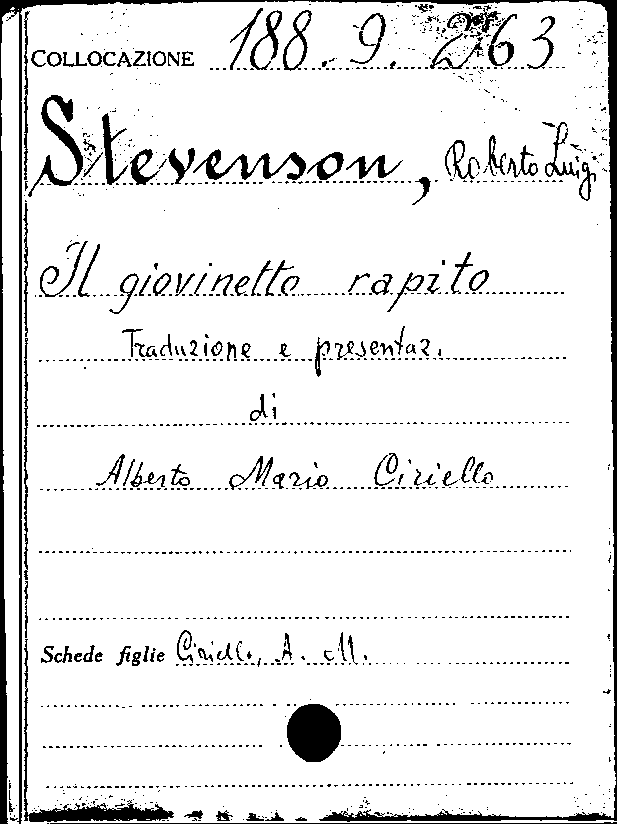 COLLOCAZIONE 188. 9. 263
Stevenson, Roberto Luigi
Il giovinetto rapito
Traduzione e presentaz.
di
Alberto Mario Ciriello
Schede figlie Ciriello, A. M.